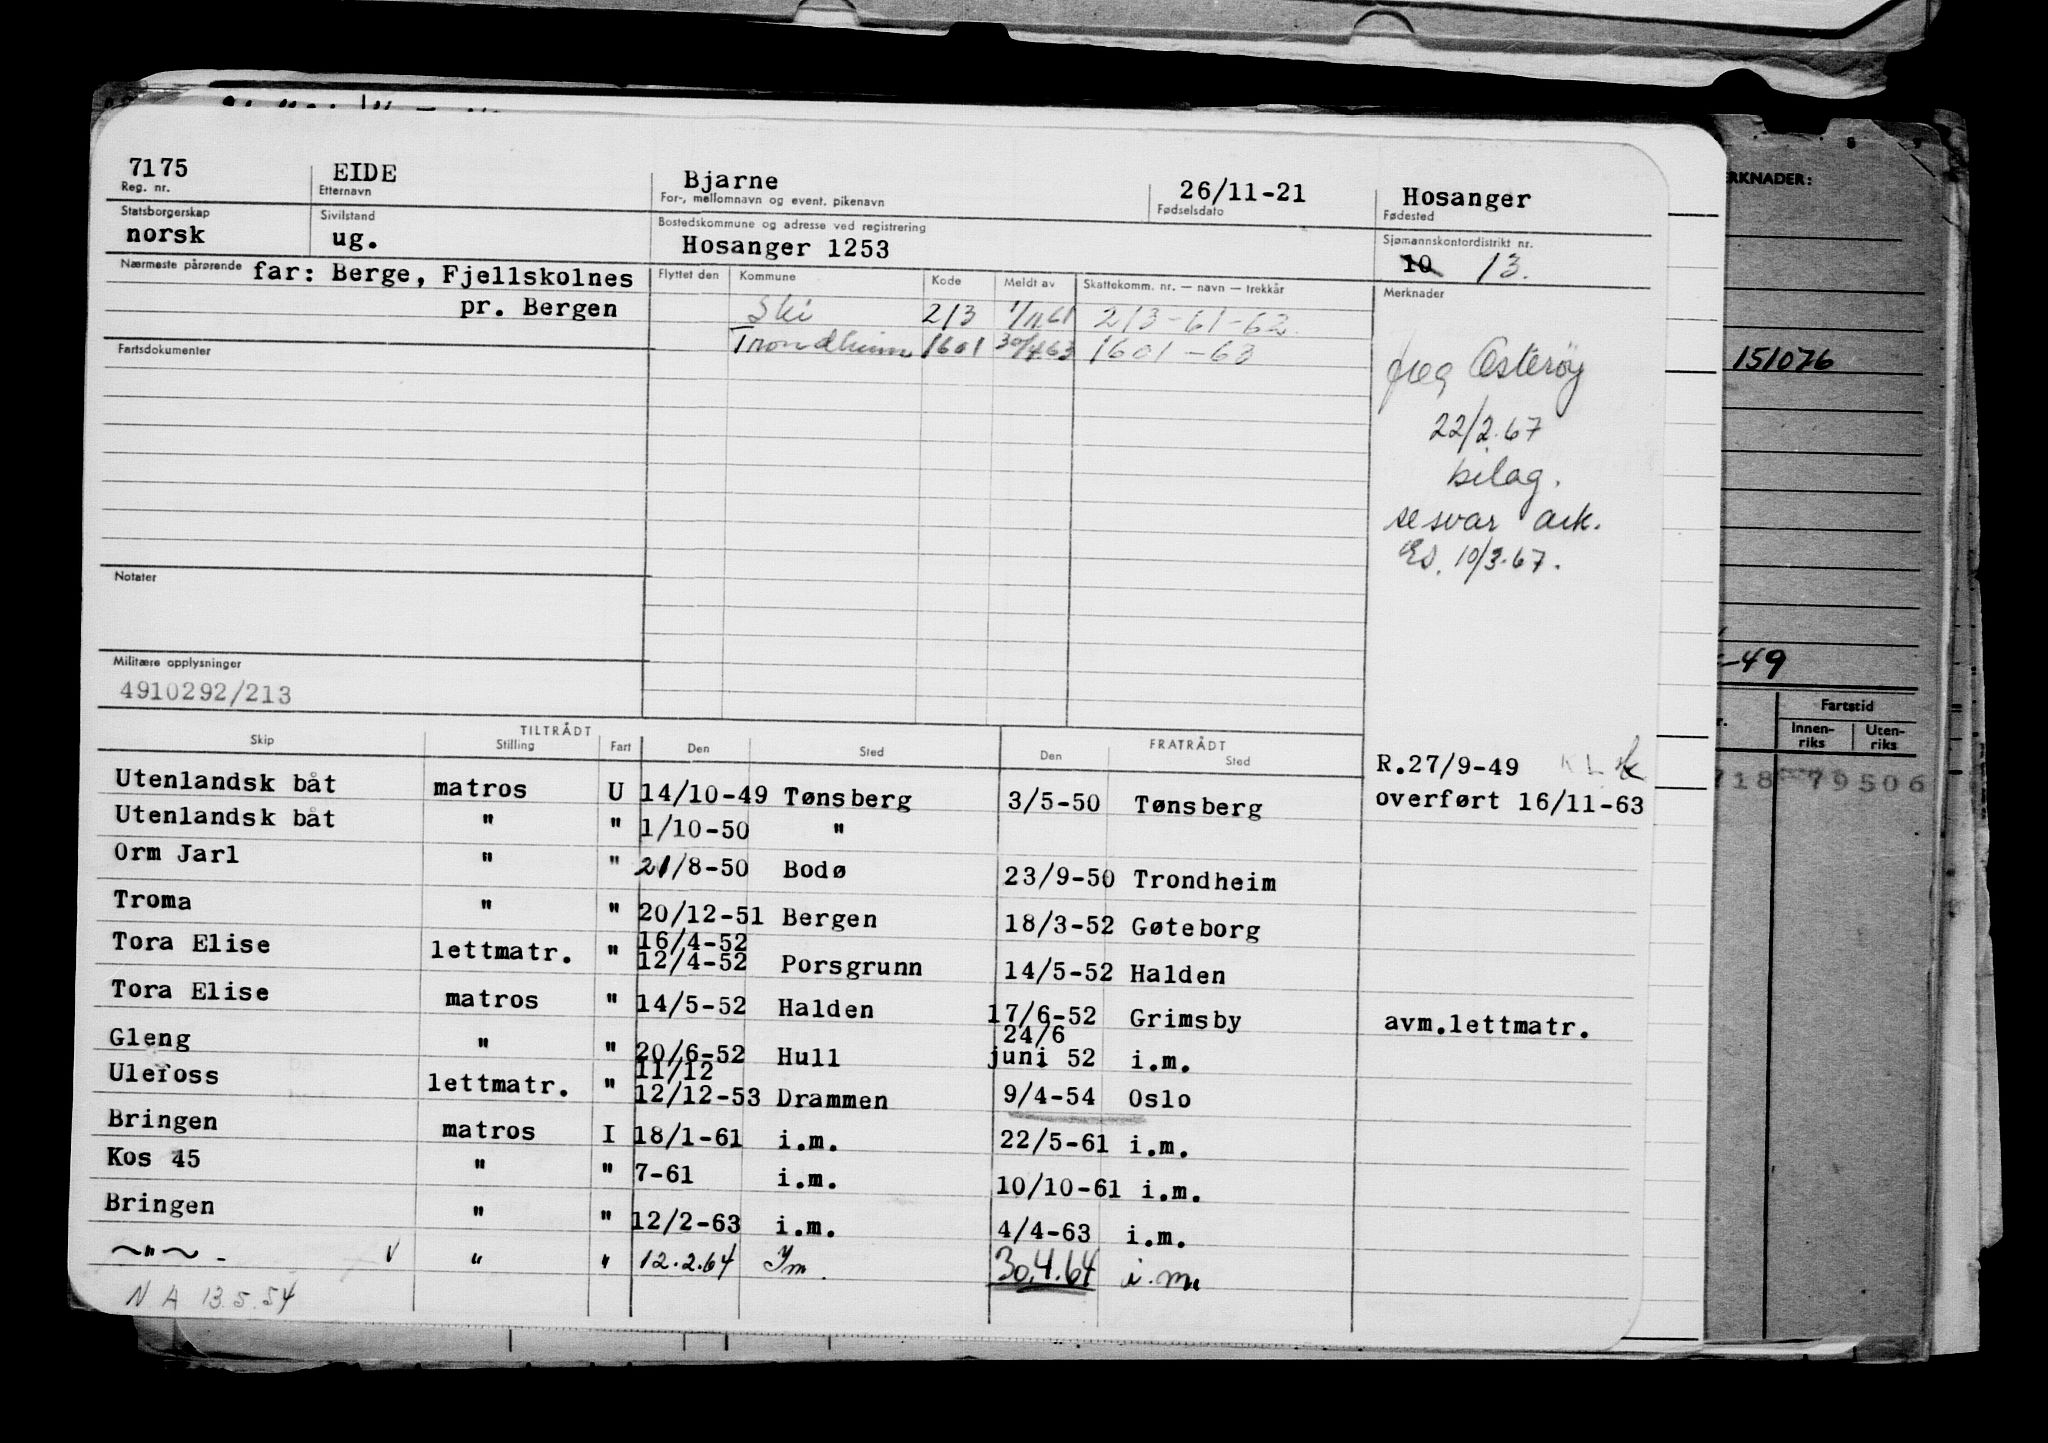 7175 EIDE Bjarne 26/11-21 Hosanger
Reg. nr. Etternavn For-, mellomnavn og event. pikenavn Fødselsdato Fødested
Statsborgerskap Sivilstand Bostedskommune og adresse ved registrering Sjømannskontordistrikt nr.
norsk ug. Hosanger 1253 10 13.
Nærmeste pårørende far: Berge, Fjellskolnes
pr. Bergen
Flyttet den Kommune Kode Meldt av Skattekomm. nr. — navn — trekkår Merknader
Ski 213 1/11 61 213-61-62
Trondheim 1601 30/4 63 1601-63
Fartsdokumenter
Osterøy
22/2.67
bilag.
se svar ark.
Es. 10/3.67.
Notater
Militære opplysninger
4910292/213
TILTRÅDT FRATRÅDT
Skip Stilling Fart Den Sted Den Sted
R.27/9-49
Utenlandsk båt matros U 14/10-49 Tønsberg 3/5-50 Tønsberg overført 16/11-63
Utenlandsk båt " " 1/10-50 "
Orm Jarl " " 21/8-50 Bodø 23/9-50 Trondheim
Troma " " 20/12-51 Bergen 18/3-52 Gøteborg
16/4-52
Tora Elise lettmatr. " 12/4-52 Porsgrunn 14/5-52 Halden
Tora Elise matros " 14/5-52 Halden 17/6-52 Grimsby avm.lettmatr.
24/6
Gleng " " 20/6-52 Hull juni 52 i.m.
11/12
Ulefoss lettmatr. " 12/12-53 Drammen 9/4-54 Oslo
Bringen matros I 18/1-61 i.m. 22/5-61 i.m.
Kos 45 " " 7-61 i.m. 10/10-61 i.m.
Bringen " " 12/2-63 i.m. 4/4-63 i.m.
~"~ - V " " 12.2.64 Im. 30.4.64 i.m.
N A 13.5.54
RKNADER:
151076
-49
Fartstid
Innen-riks Uten-riks
718 79506